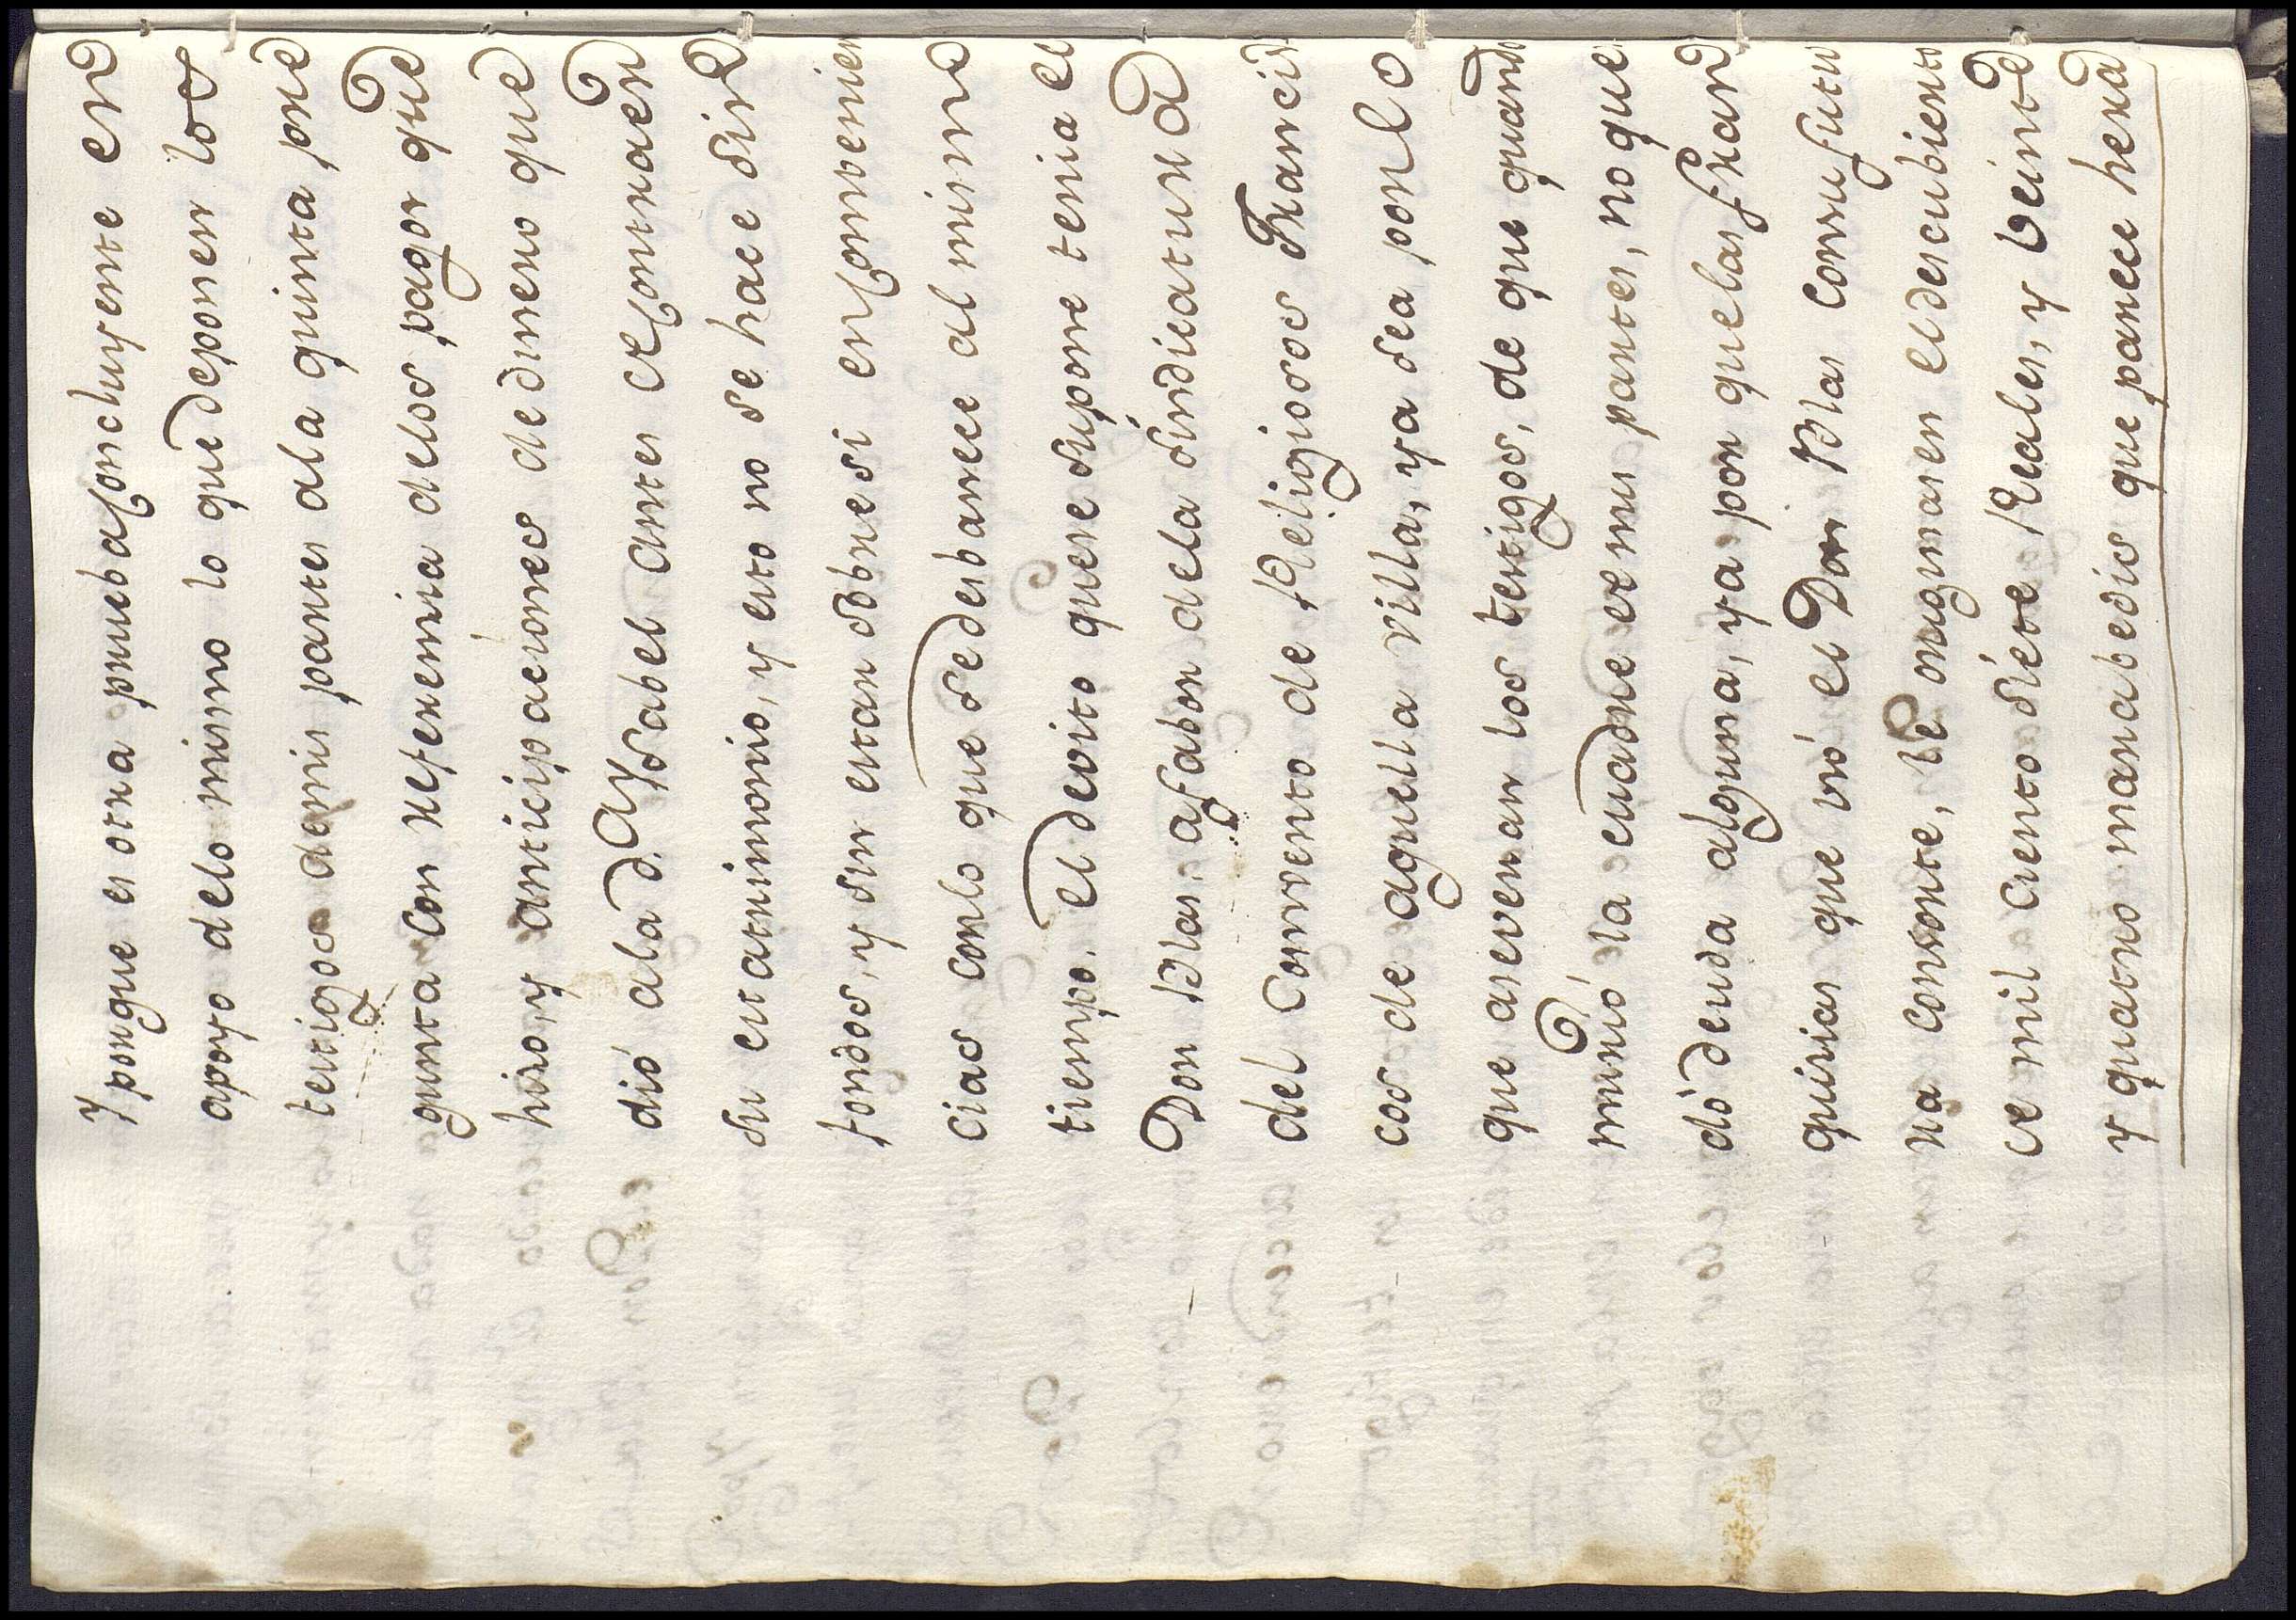 Y porque es otra prueba Conchuyente en
apoyo delo mismo lo que deponen los
testigos demis partes ala quinta pre
gunta con referenia delos pagos que
hiso, y anticipaciones de dinero que
dió ala d.ª Ysabel antes de Contraer
su matrimonio, y esto no se hace sin
fondos, y sin estan sobre si en Convenien
cias conlo que se desbanece al mismo
tiempo. el devito que se supone tenia el
Don Blas, afabor dela sindicatura
del Convento de Religiosos Francis
cos de aquella villa, ya sea por lo
que aseveran los testigos, de que quando
murió la madre de mis partes, no que
dó deuda alguna, ya por que las fran
quicias que usó el Don Blas con su futu
ra consorte, le originasen el descubiento
de mil ciento siete Reales, y veinte
y quatro marabedis que parece hera